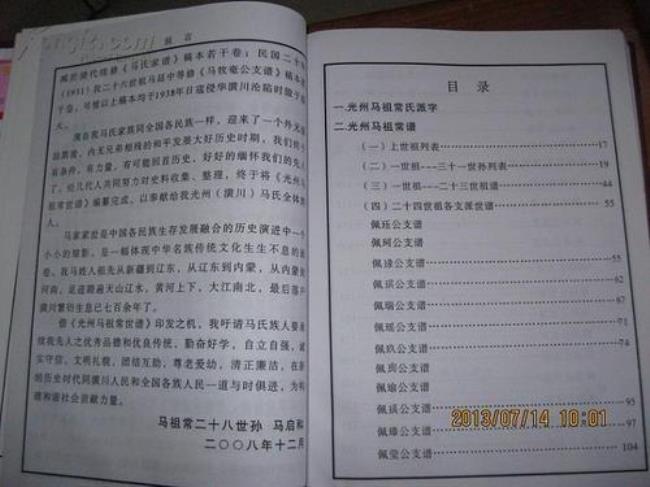 前 言
咸世世代续修《马氏家谱》稿本若干卷；民国二十年
(1931)我二十六世祖马延中等修《马牧毫公支谱》稿本
于卷，可惜以上稿本均于1938年日寇侵华潢川沦陷时毁于
火。
我马氏家族同全国各民族一样，迎来了一个外无
内无兄弟相残的和平发展大好历史时期，我们
有条件，有力量，有可能回首历史，好好的缅怀我们的先人
了。经几代人共同努力对史料收集、整理，终于将《光州马
祖常世谱》编纂完成，以奉献给我光州(潢川)马氏全体
人。
马家家世是中国各民族生存发展融合的历史演进中一个
小小的缩影，是一幅体现中华名族传统文化生生不息的
卷。我马姓人祖先从新疆到辽东，从辽东到内蒙，从内蒙到
河南，足迹踏遍天山辽水，黄河上下，大江南北，最后落户
潢川繁衍生息已七百余年了。
借《光州马祖常世谱》印发之机，我吁请马氏族人要
续我先人之优秀品德和优良传统，勤奋好学，自立自强，诚
实守信，文明礼貌，团结互助，尊老爱幼，清正廉洁，在新
的历史时代同潢川人民和全国各族人民一道与时俱进，为构
建和谐社会贡献力量。
马祖常二十八世孙 马启和
二〇〇八年十二月
目 录
一.光州马祖常氏派字
二.光州马祖常谱
(一)上世祖列表 17
(二)一世祖---三十一世孙列表 19
(三)一世祖---二十三世祖谱 44
(四)二十四世祖各支派世谱 55
佩珏公支谱
佩珂公支谱
佩琭公支谱 55
佩琪公支谱 62
佩瑞公支谱 67
佩瑶公支谱 71
佩玖公支谱 74
佩公支谱
佩瑜公支谱
佩璜公支谱 95
佩公支谱 97
佩莹公支谱 104
2013/07/14 10:01